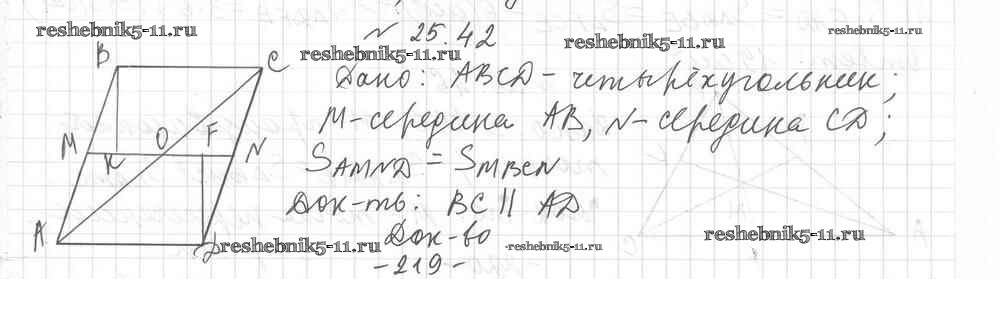 reshebnik5-11.ru
№ 25.42
reshebnik5-11.ru
reshebnik5-11.ru
reshebnik5-11.ru
Дано: ABCD - четырёхугольник;
M - середина AB, N - середина CD;
S AMND = S MBCN
Док-ть: BC || AD
Док-во
reshebnik5-11.ru
reshebnik5-11.ru
reshebnik5-11.ru
- 219 -
B C
M K O F N
A D